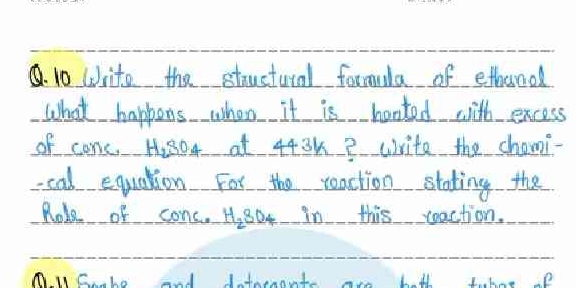 Q.10 Write the structural formula of ethanol
What happens when it is heated with excess
of conc. H₂SO4 at 443K ? Write the chemi-
-cal equation For the reaction stating the
Role of conc. H₂SO4 in this reaction.
Q.11 Soaps and detergents are both types of